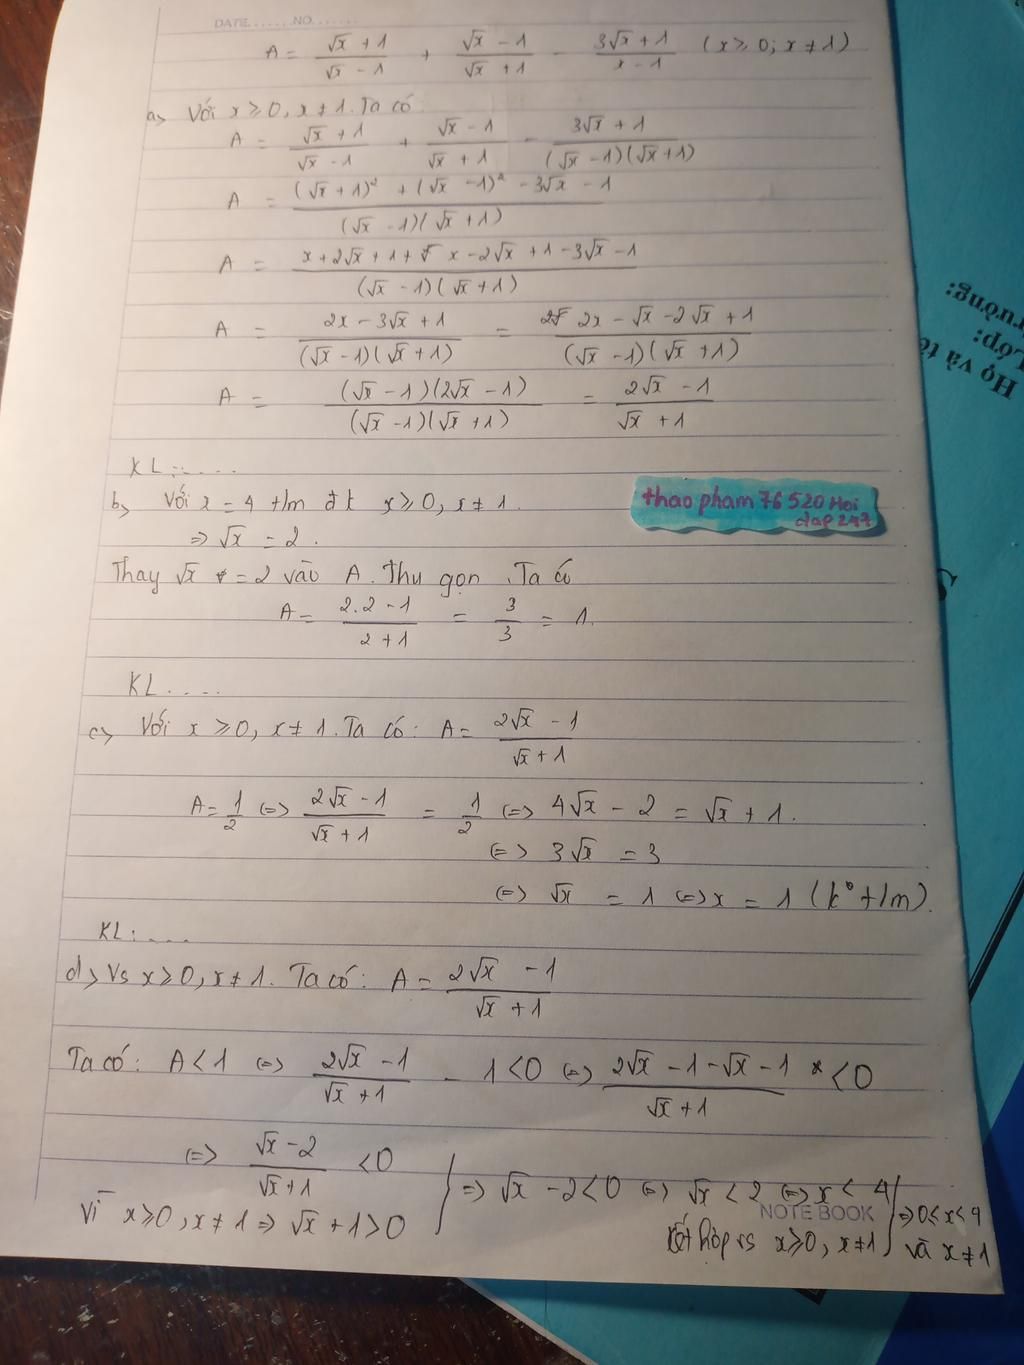 DATE.......NO.......
A = (√x + 1)/(√x - 1) + (√x - 1)/(√x + 1) - (3√x + 1)/(x - 1) (x ≥ 0; x ≠ 1)
a> Với x ≥ 0, x ≠ 1. Ta có:
A = (√x + 1)/(√x - 1) + (√x - 1)/(√x + 1) - (3√x + 1)/((√x - 1)(√x + 1))
A = ((√x + 1)² + (√x - 1)² - 3√x - 1)/((√x - 1)(√x + 1))
A = (x + 2√x + 1 + x - 2√x + 1 - 3√x - 1)/((√x - 1)(√x + 1))
A = (2x - 3√x + 1)/((√x - 1)(√x + 1)) = (2x - √x - 2√x + 1)/((√x - 1)(√x + 1))
A = ((√x - 1)(2√x - 1))/((√x - 1)(√x + 1)) = (2√x - 1)/(√x + 1)
KL:.....
b> Với x = 4 t/m đk x ≥ 0, x ≠ 1.
⇒ √x = 2.
thao pham 76520 Hoi
dap 247
Thay √x = 2 vào A. thu gọn. Ta có
A = (2.2 - 1)/(2 + 1) = 3/3 = 1.
KL....
c> Với x ≥ 0, x ≠ 1. Ta có: A = (2√x - 1)/(√x + 1)
A = 1/2 ⇔ (2√x - 1)/(√x + 1) = 1/2 ⇔ 4√x - 2 = √x + 1.
⇔ 3√x = 3
⇔ √x = 1 ⇔ x = 1 (k° t/m).
KL:....
d> Vs x ≥ 0, x ≠ 1. Ta có: A = (2√x - 1)/(√x + 1)
Ta có: A < 1 ⇔ (2√x - 1)/(√x + 1) - 1 < 0 ⇔ (2√x - 1 - √x - 1)/(√x + 1) < 0
⇔ (√x - 2)/(√x + 1) < 0
Vì x ≥ 0, x ≠ 1 ⇒ √x + 1 > 0
⇒ √x - 2 < 0 ⇔ √x < 2 ⇔ x < 4
Kết hợp vs x ≥ 0, x ≠ 1
⇒ 0 ≤ x < 4
và x ≠ 1
NOTE BOOK
Họ và tê
Lớp:
Trường: